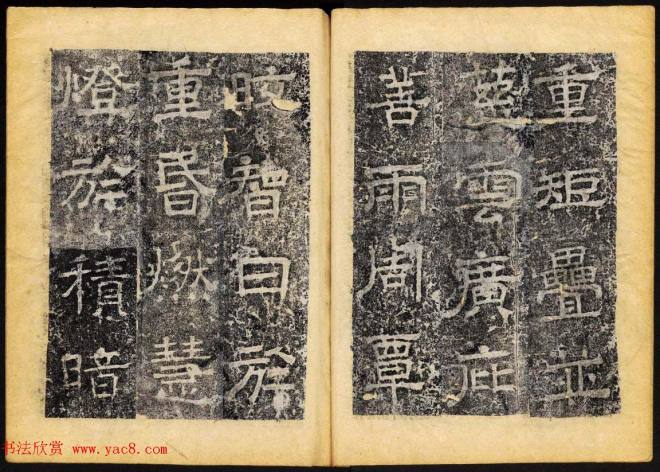 重矩疊並
慈雲廣庇
善雨周覃
晈智日於
重昏燃慧
燈於積暗
书法欣赏 www.yac8.com